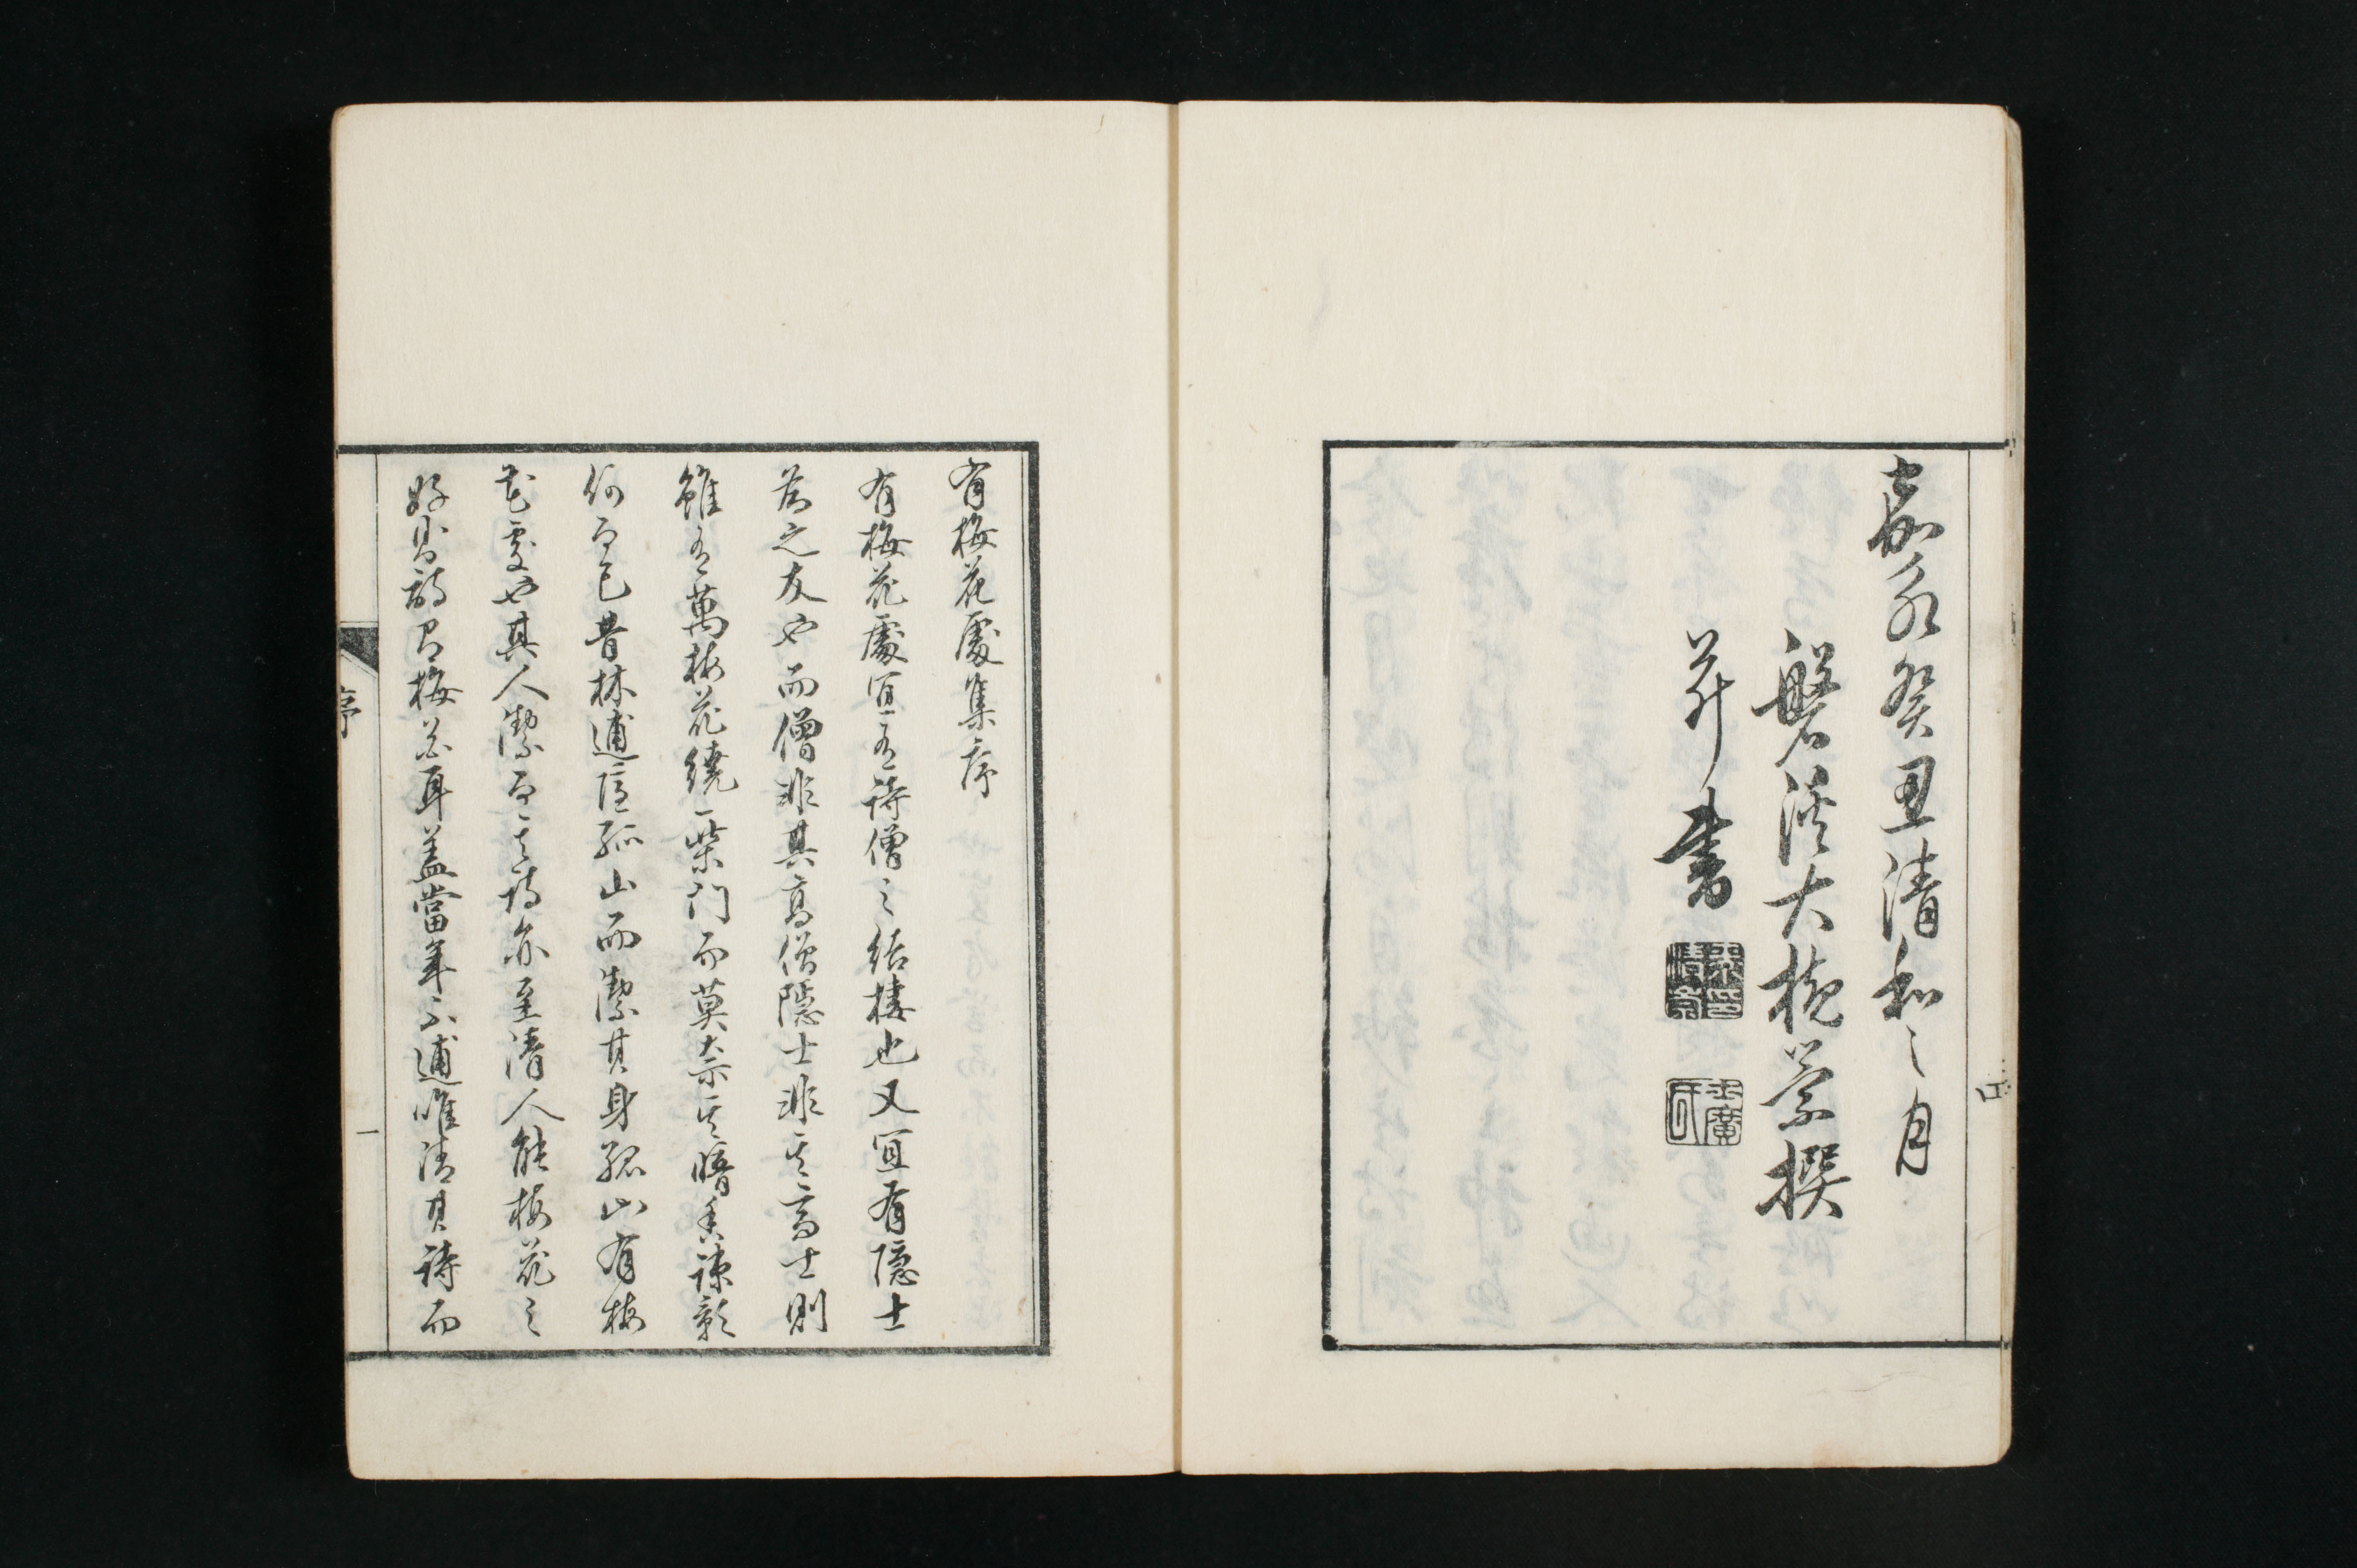 嘉永癸丑清和之月
磐溪大槻崇撰
并書
四
有梅花處集序
有梅花處宜有詩僧之結棲也又宜有隱士
為之友也而僧非其高僧隱士非其高士則
雖有萬梅花繞柴門而莫奈其暗香疎影
何而已昔林逋隱孤山而潔其身孤山有梅
花處也其人潔而其詩亦至清人能梅花之
好則詩即梅花耳蓋當年之逋唯清其詩而
序
一